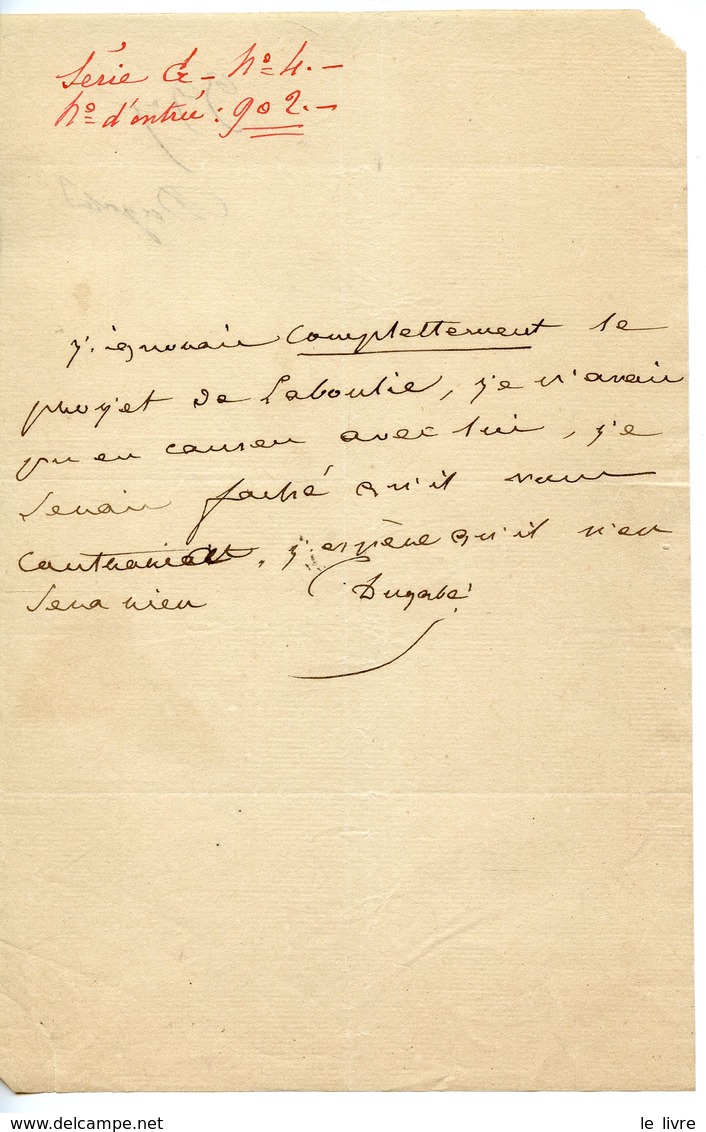 Série G - N° 4. -
N° d'entrée : 902. -
j'ignorais complettement le
projet de Laboulie, je n'avais
pu en causer avec lui, je
serais faché qu'il vous
contrariat, j'espère qu'il n'en
sera rien Dugabé
www.delcampe.net
le livre